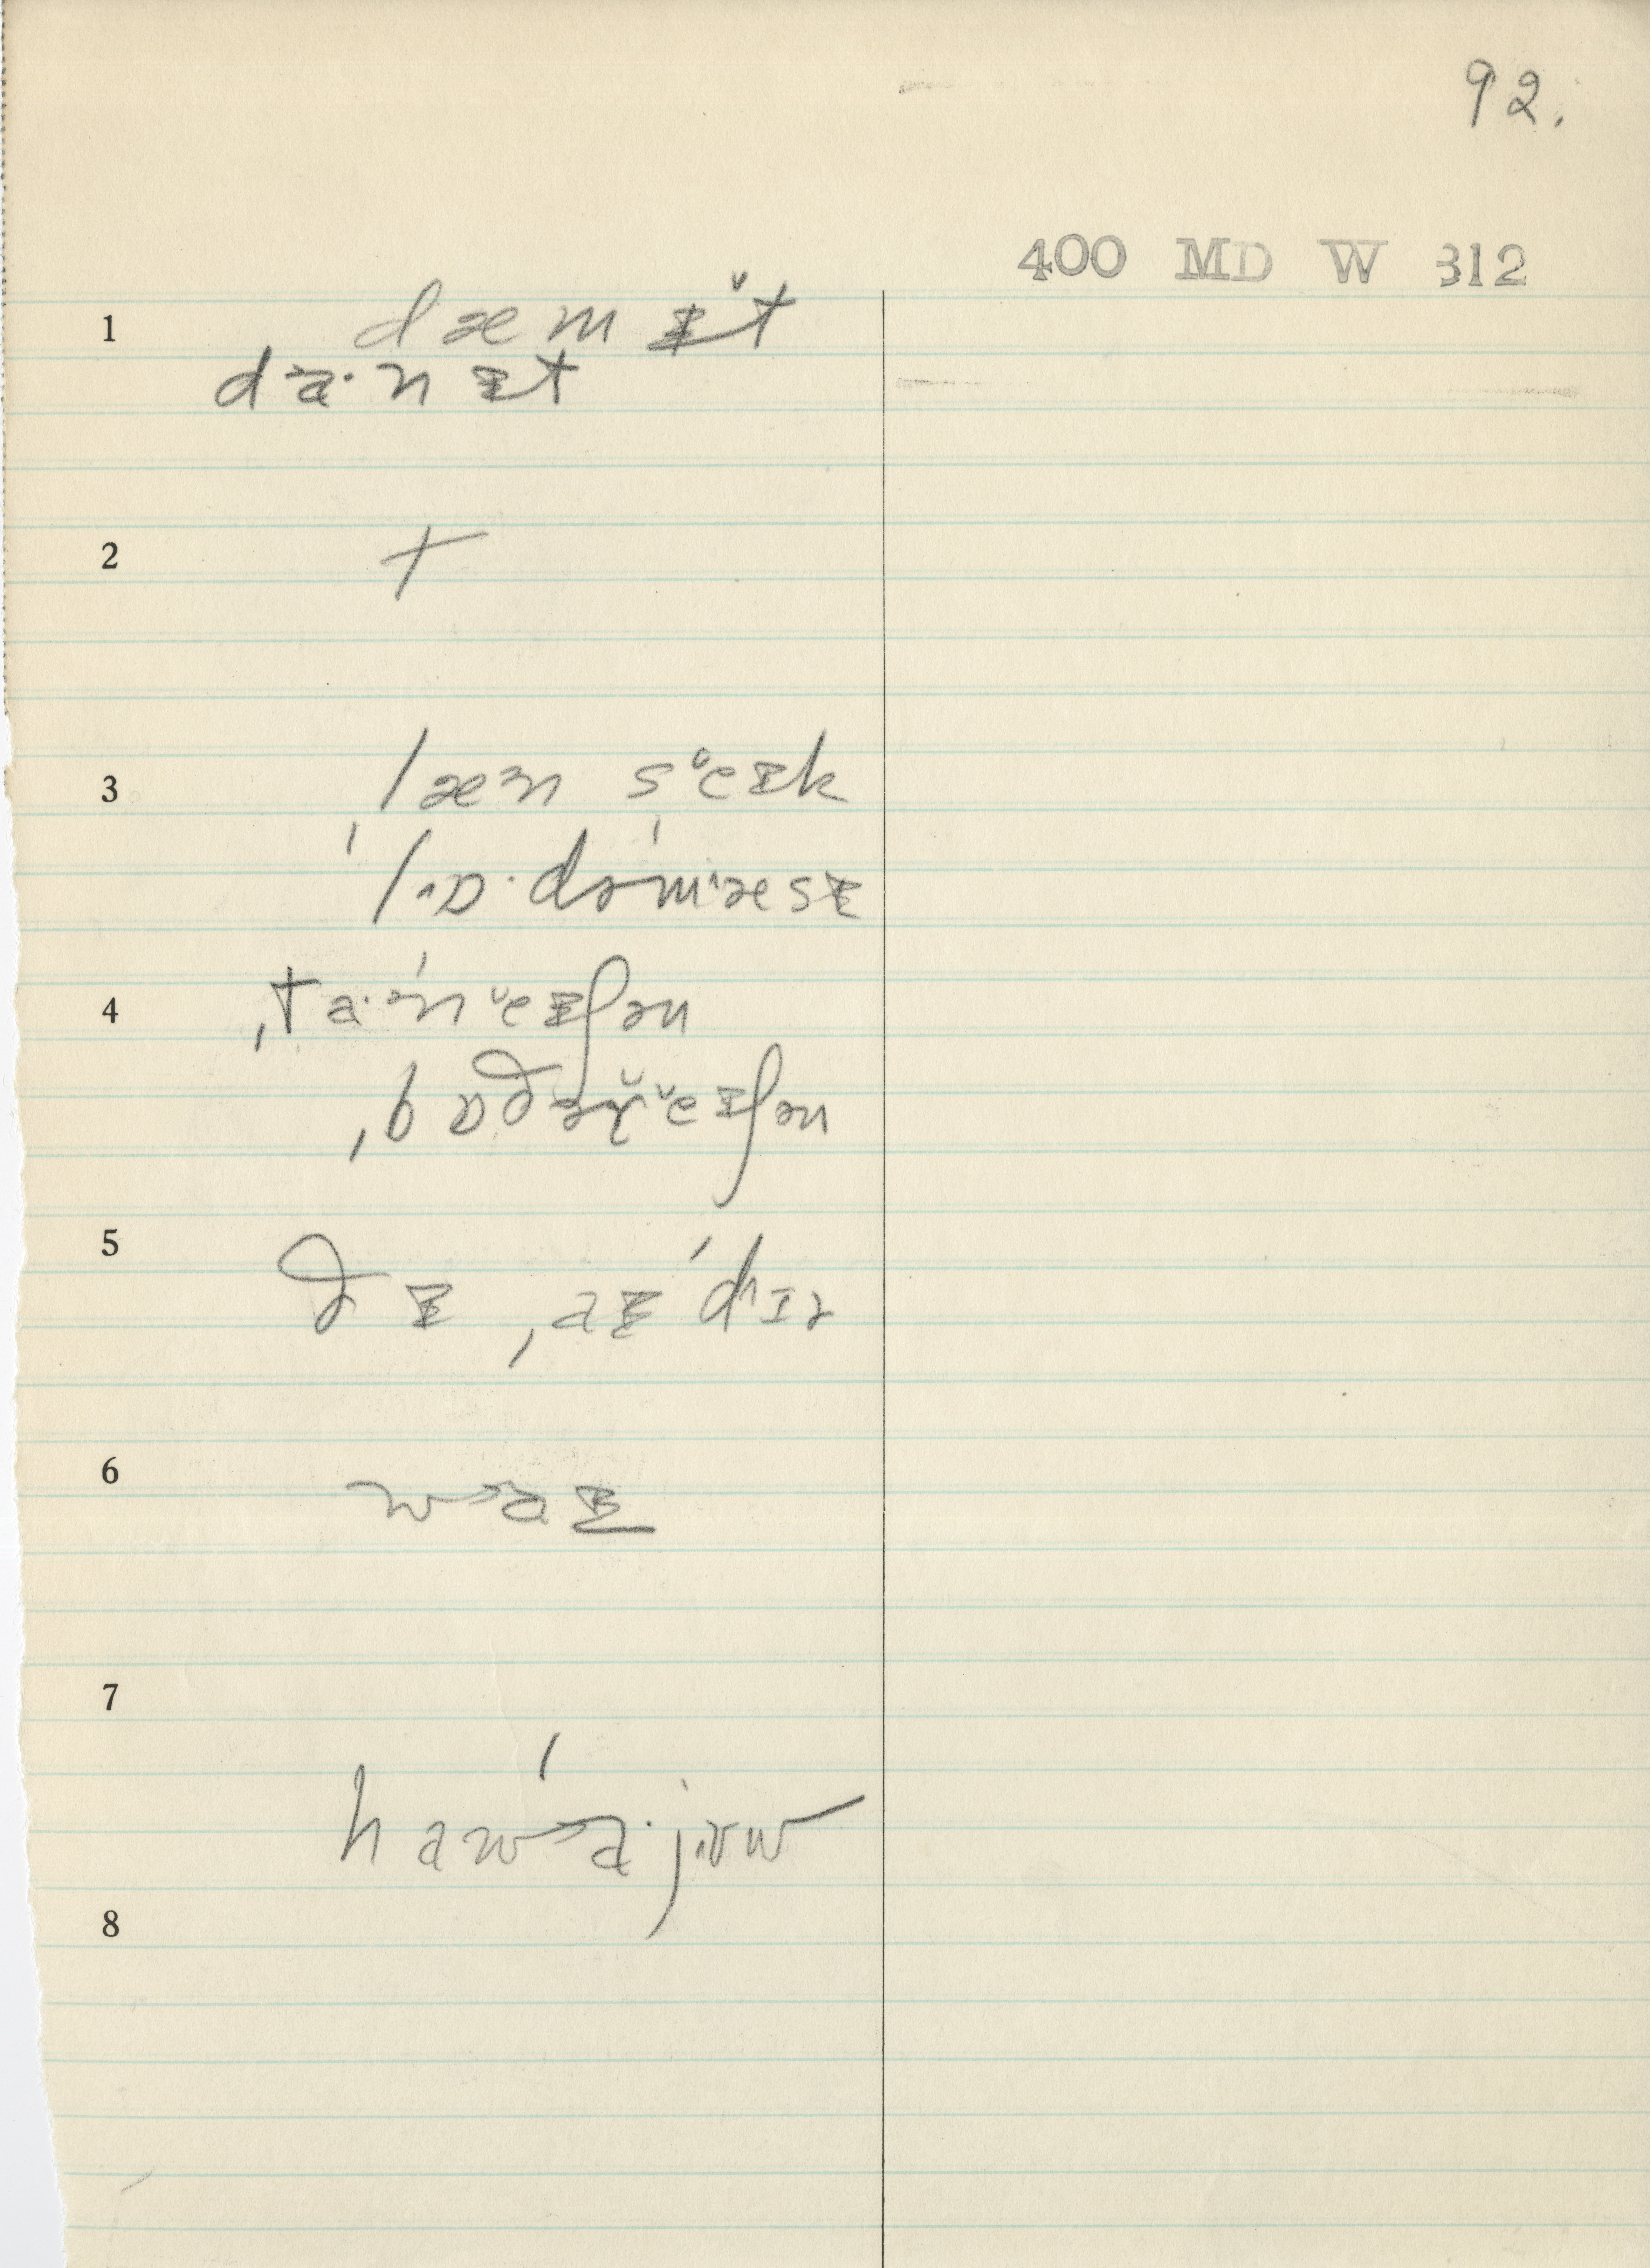 92.
400 MD W 312
1 dæm ɪ̆t
da·n ɪt
2 +
3 læ̃n seɪk
ˈlɒ·dəˈmæsɪ
4 ˌta·ˈneɪʃən
ˌbɒðəɾ̆eɪʃən
5 ðɪ ˌaɪˈdɪə
6 waɪ
7
haˈwa·jʊw
8